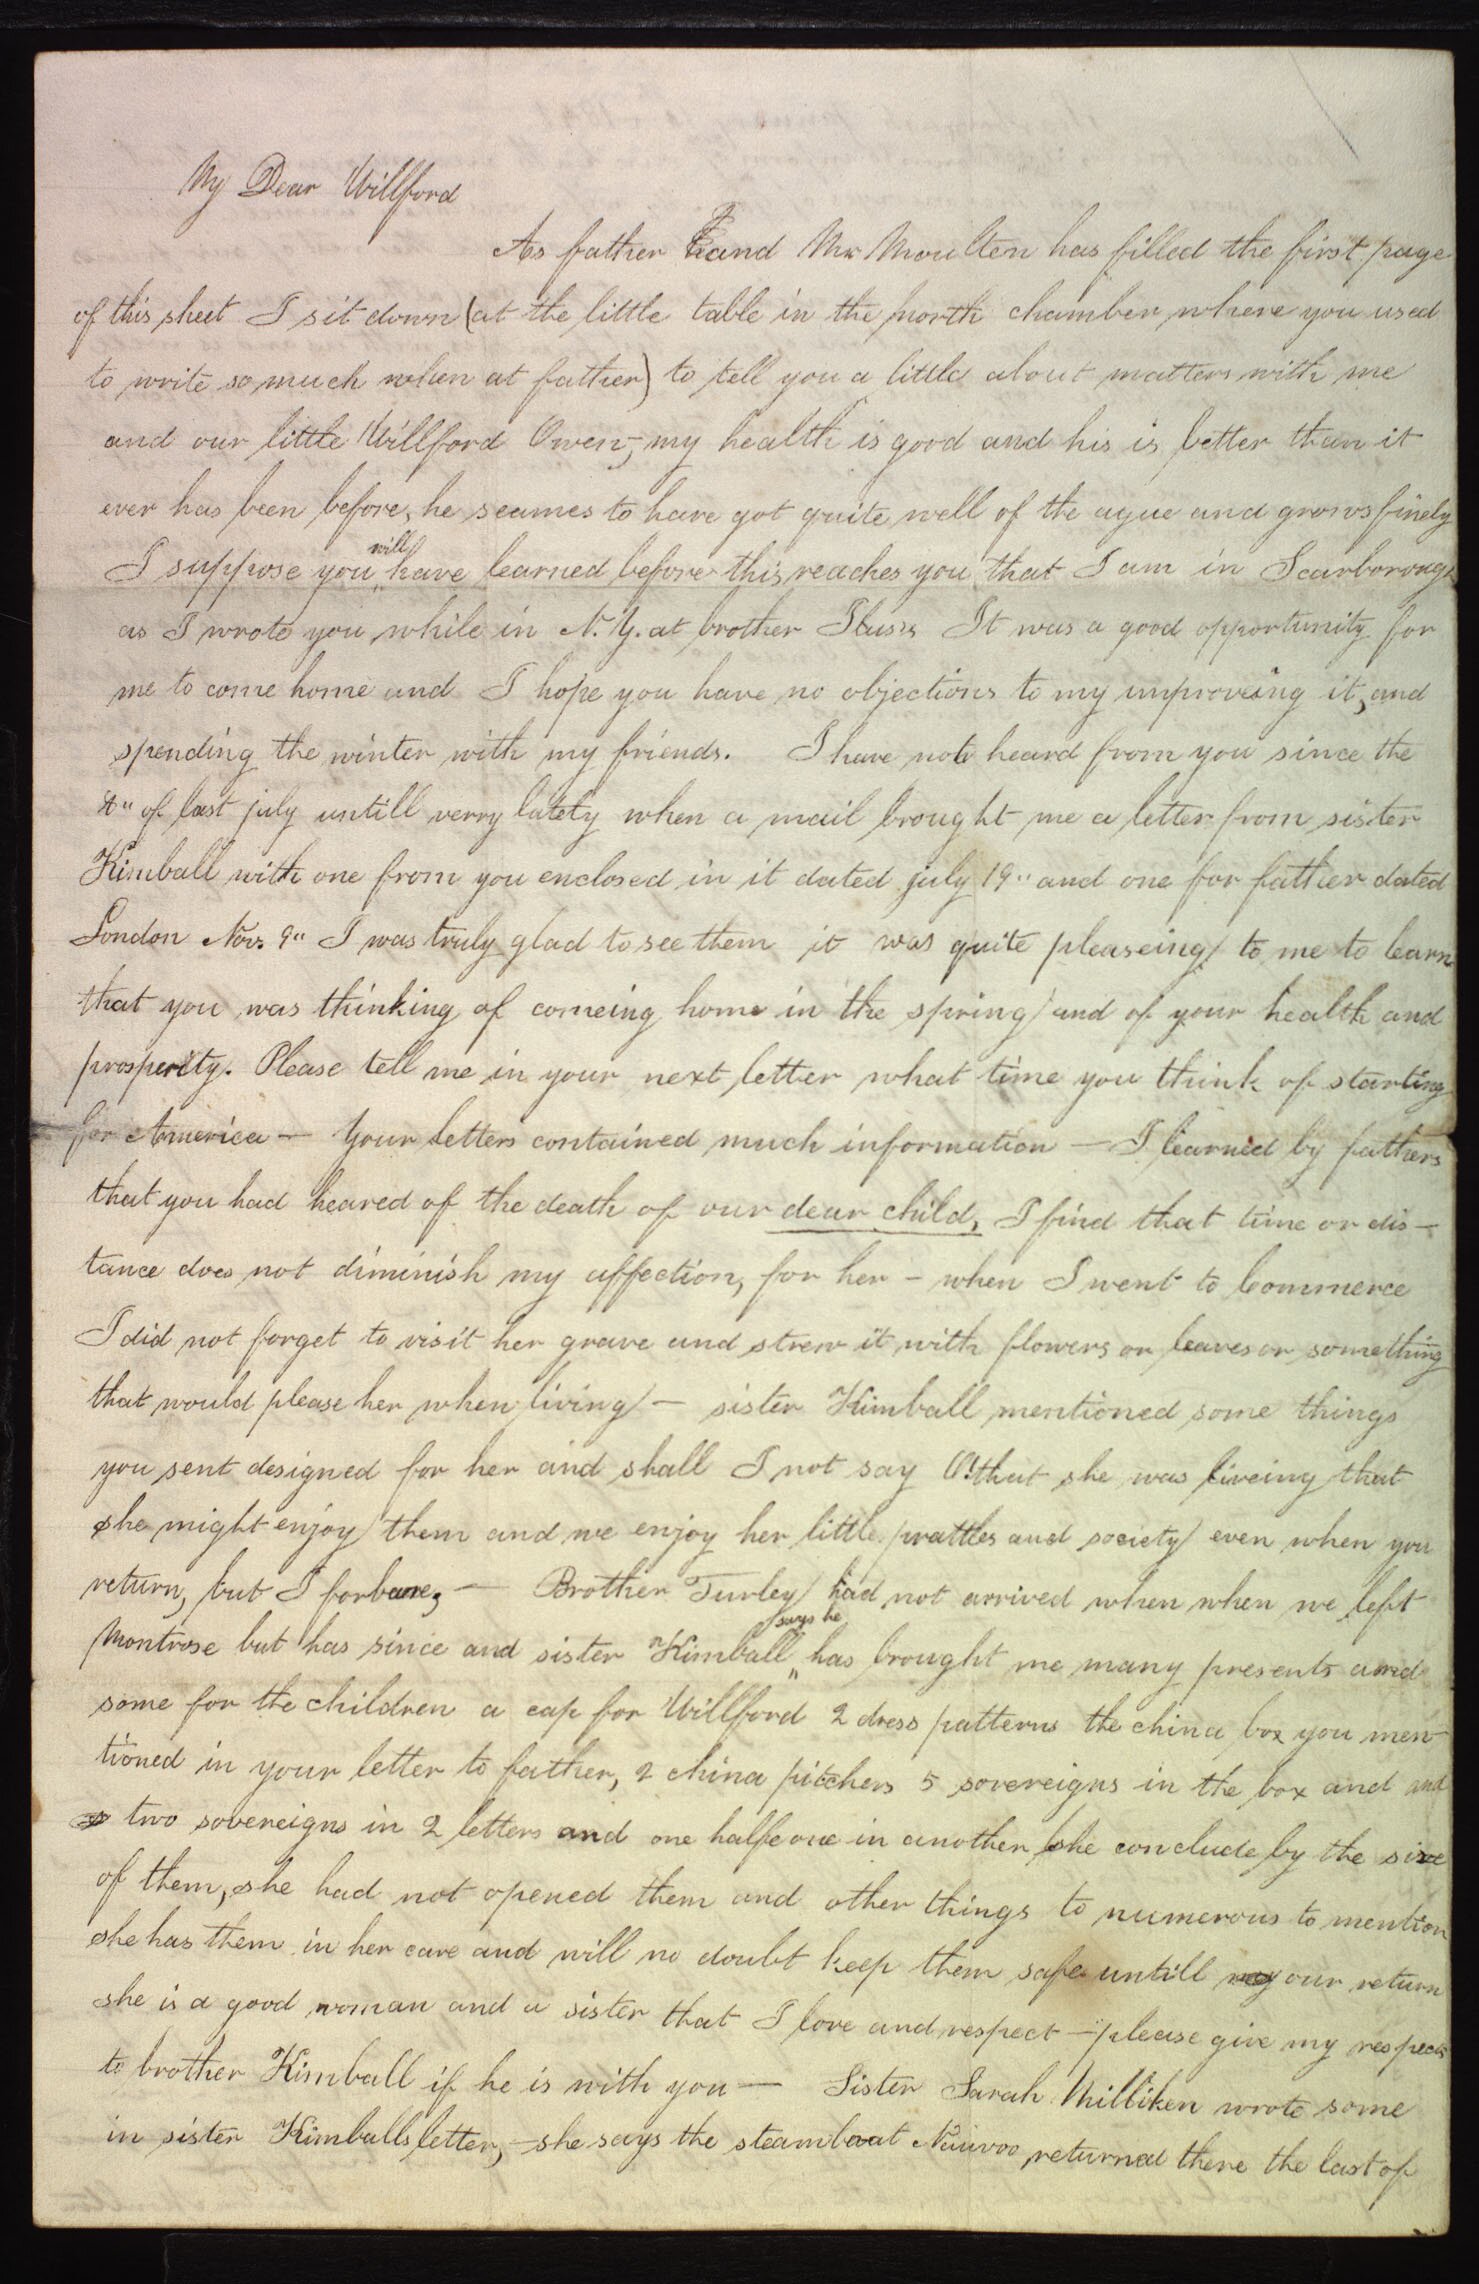 My Dear Willford
As father and Mr Moulten has filled the first page
of this sheet I sit down (at the little table in the north chamber where you used
to write so much when at father) to tell you a little about matters with me
and our little Willford Owen, my health is good and his is better than it
ever has been before, he seames to have got quite well of the ague and grows finely
I suppose you will have learned before this reaches you that I am in Scarborough
as I wrote you while in N. Y. at brother It was a good opportunity for
me to come home and I hope you have no objections to my improveing it, and
spending the winter with my friends. I have not heard from you since the
of last july untill verry lately when a mail brought me a letter from sister
Kimball with one from you enclosed in it dated july 19" and one for father dated
London Nov. 9" I was truly glad to see them it was quite pleaseing to me to learn
that you was thinking of comeing home in the spring and of your health and
prosperity. Please tell me in your next letter what time you think of starting
for America — Your letters contained much information — I learned by fathers
that you had heared of the death of our dear child, I find that time or dis-
tance does not diminish my affection, for her - when I went to Commerce
I did not forget to visit her grave and strew it with flowers or leaves or something
that would please her when living — sister Kimball mentioned some things
you sent designed for her and shall I not say O! that she was liveing that
she might enjoy them and we enjoy her little prattles and society even when you
return, but I forbare, — Brother Turley had not arrived when when we left
Montrose but has since and sister Kimball says he has brought me many presents and
some for the children a cap for Willford 2 dress patterns the china box you men-
tioned in your letter to father, 2 china pitchers 5 sovereigns in the box and and
two sovereigns in 2 letters and one halfe one in another she conclude by the size
of them, she had not opened them and other things to numerous to mention
she has them in her care and will no doubt keep them safe untill our return
she is a good woman and a sister that I love and respect — please give my respects
to brother Kimball if he is with you — Sister Sarah Milliken wrote some
in sister Kimballs letter, - she says the steamboat Nauvoo returned there the last of